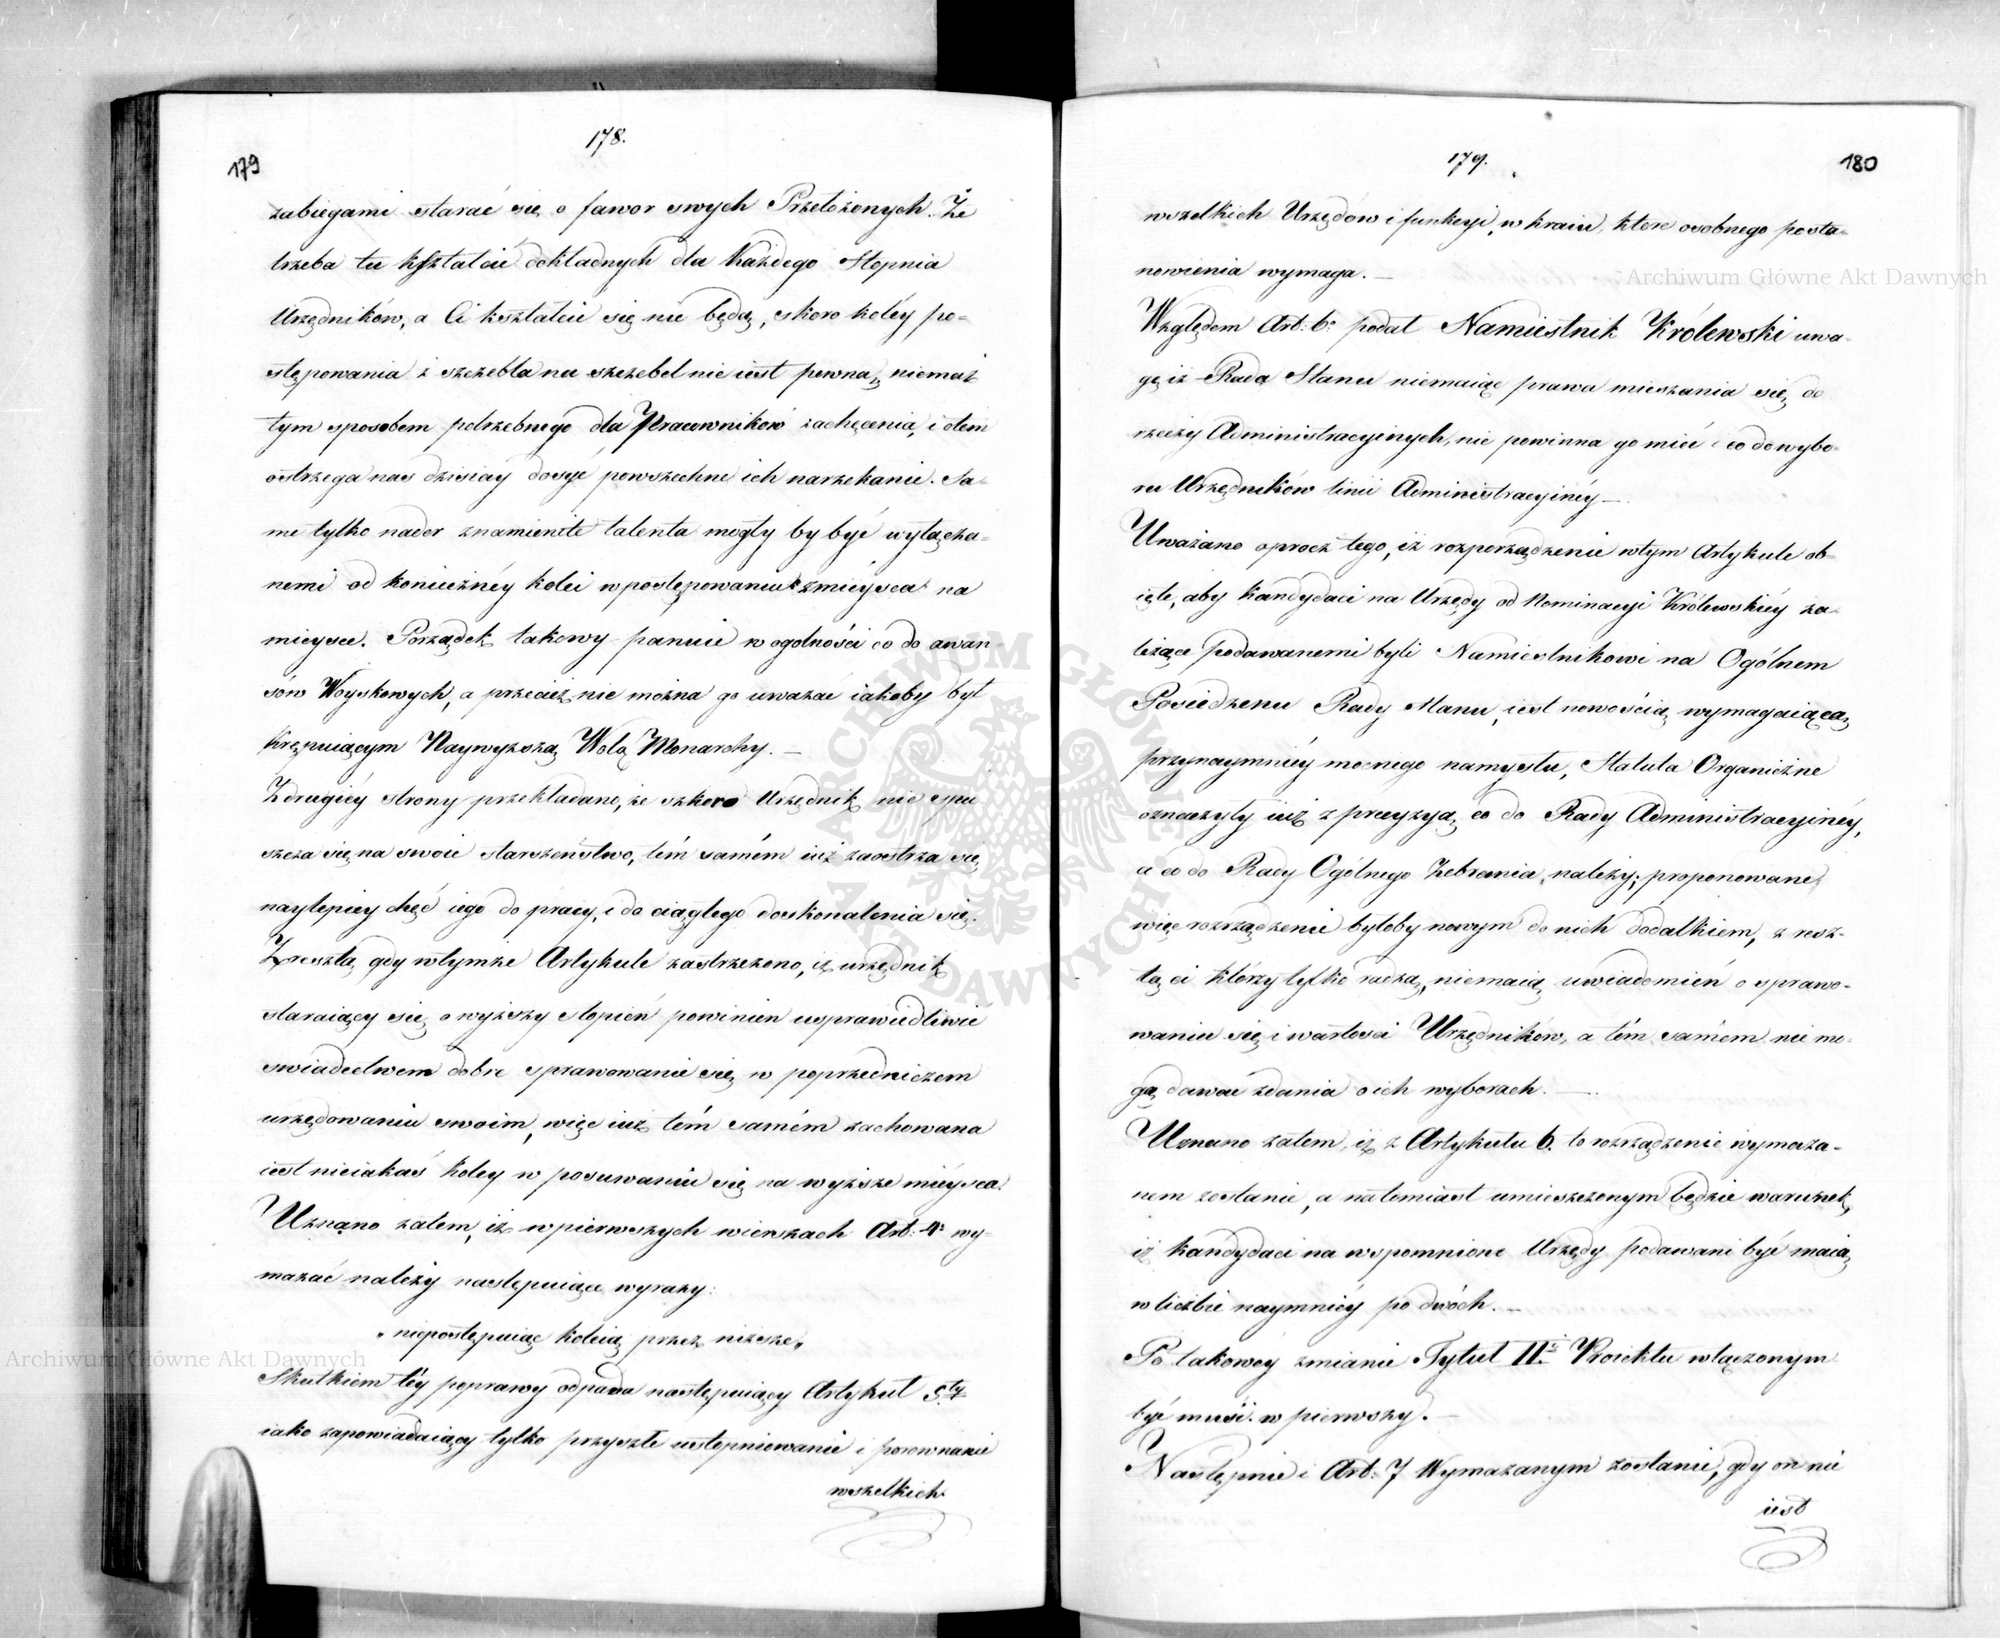 178.
179
zabiegami starać się o fawor swych Przełożonych. Że
trzeba tu kształcić dokładnych dla każdego Stopnia
Urzędników, a Ci kształcić się nie będą, skoro koléy po-
stępowania z szczebla na szczebel nie iest pewną, niemasz
tym sposobem potrzebnego dla Pracowników zachęcenia, i otem
ostrzega nas dzisiay dosyć powszechne ich narzekanie. Sa-
me tylko nader znamienite talenta mogły by być wyłącza-
nemi od konieczney kolei w postępowaniu z mieysca na
mieysce. Porządek takowy panuie w ogólności co do awan-
sów Woyskowych, a przecież nie można go uważać iakoby był
krępuiącym Naywyższą Wolą Monarchy. —
Z drugiéy strony przekładano, że szkoro Urzędnik nie spu
szcza się na swoie starszeństwo, tém samém iuż zaostrza się
naylepiey chęć iego do pracy, i do ciągłego doskonalenia się.
Zresztą gdy wtymże Artykule zastrzeżono, iż urzędnik
staraiący się o wyższy stopień powinien usprawiedliwić
swiadectwem dobre sprawowanie się w poprzedniczem
urzędowaniu swoim, więc iuż tém samém zachowana
iest nieiakaś koley w posuwaniu się na wyższe mieysca.
Uznano zatem, iż w pierwszych wierszach Art: 4º wy-
mazać należy następuiące wyrazy:
„niepostępuiąc koleią przez niższe„
Skutkiem téy poprawy odpada następuiący Artykuł 5.ty
iako zapowiadaiący tylko przyszłe ustopniowanie i porównanie
wszelkich
179.
180
wszelkich Urzędów i funkcyi, w kraiu, które osobnego posta-
nowienia wymaga. —
Względem Art: 6º podał Namiestnik Królewski uwa-
gę iż Rada Stanu niemaiąc prawa mieszania się do
rzeczy Administracyinych, nie powinna go mieć i co do wybo-
ru Urzędników linii Administracyinéy —
Uważano oprocz tego, iż rozporządzenie wtym Artykule ob-
ięte, aby kandydaci na Urzędy od Nominacyi Królewskiéy za-
leżące podawanemi byli Namiestnikowi na Ogólnem
Posiedzeniu Rady Stanu, iest nowością wymagaiącą
przynaymniéy mocnego namysłu, Statuta Organiczne
oznaczyły iuż z precyzyą co do Rady Administracyinéy,
a co do Rady Ogólnego Zebrania należy; proponowane
więc rozrządzenie byłoby nowym do nich dodatkiem, z resz-
tą ci którzy tylko radzą, niemaią uwiadomień o sprawo-
waniu się i wartości Urzędników, a tém samém nie mo-
gą dawać zdania o ich wyborach. —
Uznano zatem, iż z Artykułu 6. to rozrządzenie wymaza-
nem zostanie, a natomiast umieszczonym będzie warunek,
iż kandydaci na wspomnione Urzędy podawani być maią
w liczbie naymniéy po dwóch. —
Po takowéy zmianie Tytuł IIi Proiektu włączonym
być musi w pierwszy. —
Następnie i Art: 7 Wymazanym zostanie, gdy on nie
iest
Archiwum Główne Akt Dawnych
Archiwum Główne Akt Dawnych
ARCHIWUM GŁÓWNE AKT DAWNYCH